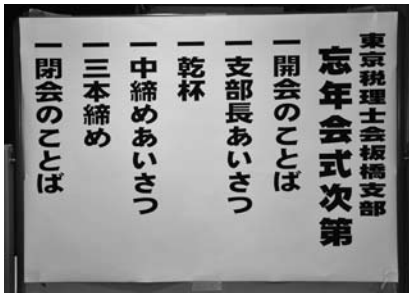 東京税理士会板橋支部
忘年会式次第
一開会のことば
一支部長あいさつ
一乾杯
一中締めあいさつ
一三本締め
一閉会のことば